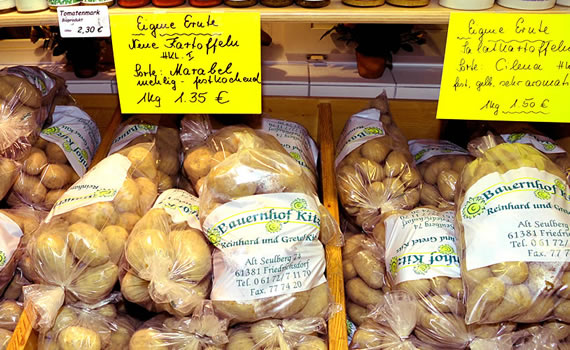 Tomatenmark
Bioprodukt
2,30 €
Eigene Ernte
Neue Kartoffeln
HKL. I
Sorte: Marabel
mehlig - festkochend
1Kg 1.35 €
Eigene Ernte
Salatkartoffeln
Sorte: Cilena HK
fest, gelb, sehr aromat
1Kg 1.50 €
Bauernhof Kitz
Reinhard und Gretel Ki
Alt Seulberg
61381 Friedrichsdorf
Tel. 0 61 72 / 7 11 70
Fax. 7 74 20
Bauernhof Kitz
Reinhard und Gretel
Alt Seulberg
61381 Friedrichs
Tel. 0 61 72
Fax. 7 7